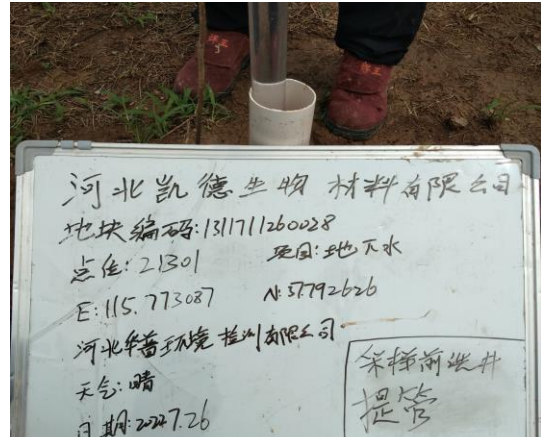 河北凯德生物材料有限公司
地块编码:1311711260028
点位:21301
项目:地下水
E:115.773087
N:37.792626
河北华普环境检测有限公司
天气:晴
采样前洗井
提管
日期:2022.7.26